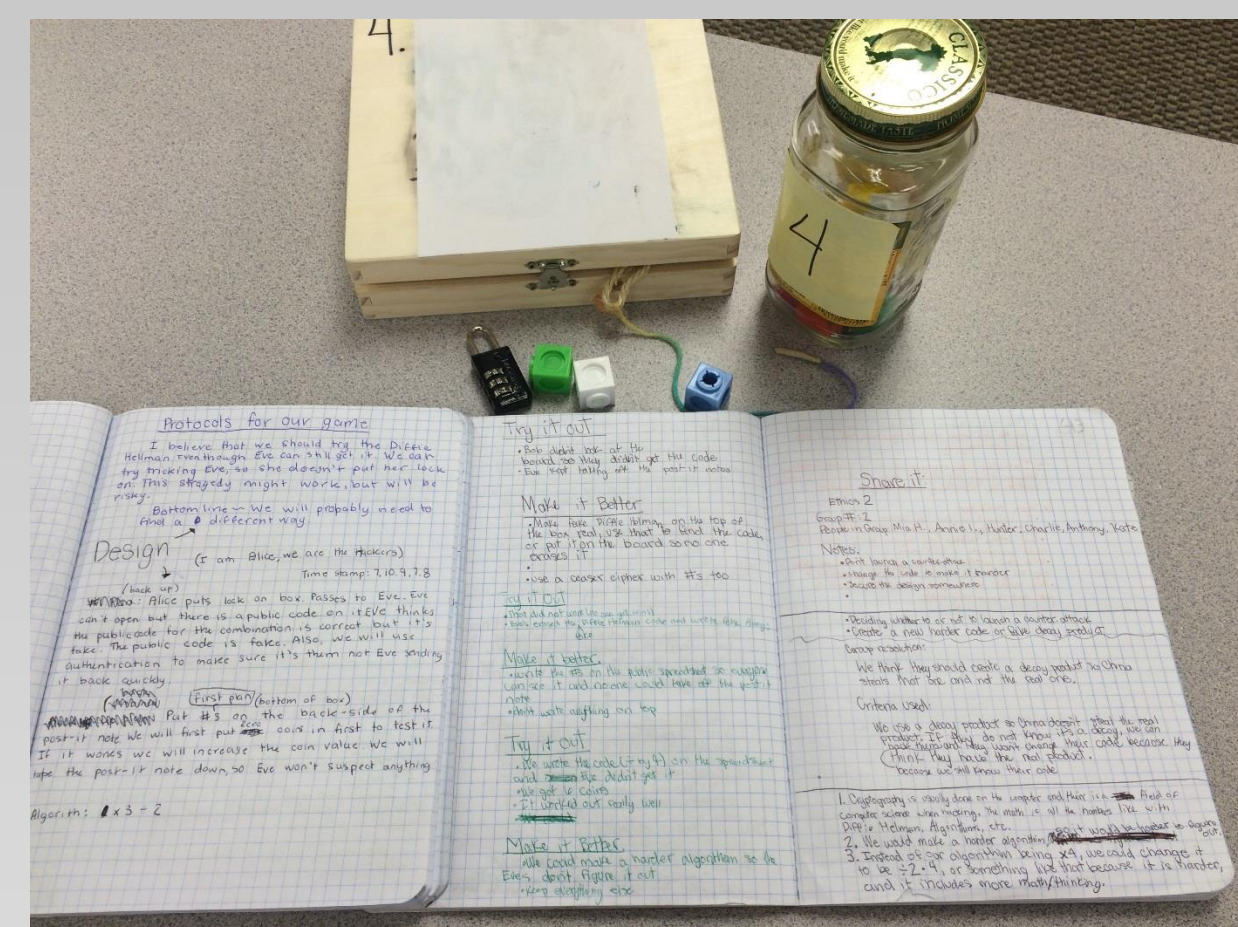 4.
CLASSICO
HOMEMADE TASTE
4
Protocols for our game
I believe that we should try the Diffie
Hellman. Eventhough Eve can still get it. We can
try tricking Eve, so she doesn't put her lock
on. This stragedy might work, but will be
risky.
Bottom line ~ We will probably need to
find a different way
Design
(I am Alice, we are the Hackers)
Time stamp: 7, 10, 9, 7, 8
(back up)
Alice puts lock on box. Passes to Eve. Eve
can't open but there is a public code on it. Eve thinks
the public code for the combination is correct but it's
fake. The public code is fake. Also, we will use
authentication to make sure it's them not Eve sending
it back quickly.
first plan (bottom of box)
Put #s on the back-side of the
post-it note We will first put zero coins in first to test it.
If it works we will increase the coin value. We will
tape the post-it note down, so Eve won't suspect anything
Algorith: x 3 - 2
Try it out
• Bob didnt look at the
board so they didn't get the code
• Eve kept taking off the post it notes
Make it Better
• Make fake Diffie on the top of
the box real, use that to find the code,
or put it on the board so no one
erases it
• use a ceaser cipher with #s too
Try it out
• That did not work
Diffie Helman code and
Make it better
• write the #s on the public spreadsheet so everyone
can see it and no one would take off the post-it
note
• don't write anything on top
Try it out
• We wrote the code on the spreadsheet
and Eve didn't get it
• We got 6 coins
• It worked out really well
Make it Better
• We could make a harder algorithem so the
Eves don't figure it out
• Keep everything else
Share it
Ethics 2
Group #: 2
People in Group: Mia H., Annie I., Hunter, Charlie, Anthony, Kate
Notes:
• Don't launch a counter attack
• change the code to make it harder
• Secure the design somewhere
• Deciding whether or not to launch a counter attack
• Create a new harder code or
Group resolution:
We think they should create a decoy product so China
steals that one and not the real one.
Criteria used:
We use a decoy product so China doesn't steal the real
product. If they do not know it's a decoy, we can
hack them and they won't change their code because they
think they have the real product.
because we still know their code
1. Cryptography is usually done on the computer and their is a field of
computer science when hacking. The math is all the numbers like with
Diffie Helman, Algorithms, etc.
2. We would make a harder algorithm, to figure
out.
3. Instead of our algorithm being x4, we could change it
to be ÷2 · 4, or something like that because it is harder,
and it includes more math/thinking.